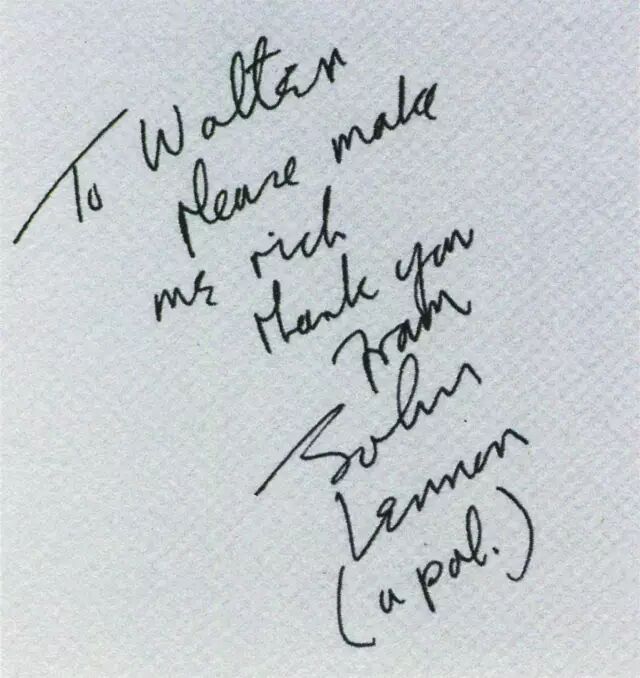 To Walter
please make
me rich
thank you
from
John
Lennon
(a pal.)